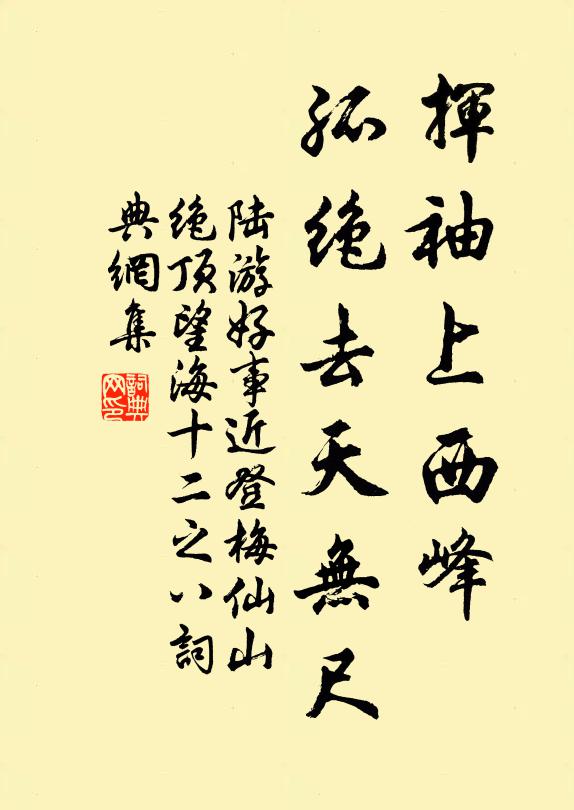 揮袖上西峰
孤絶去天無尺
陆游好事近登梅仙山
絶顶望海十二之八詞
典網集
詞典網印